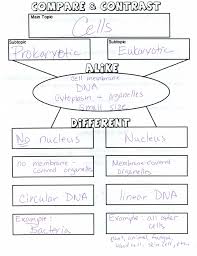 COMPARE & CONTRAST
Main Topic
Cells
Subtopic
Prokaryotic
Subtopic
Eukaryotic
ALIKE
Cell membrane
DNA
Cytoplasm - organelles
small size
DIFFERENT
No nucleus
Nucleus
no membrane -
covered organelles
Membrane-
covered organelles
circular DNA
linear DNA
Example:
Bacteria
Example: all other
cells
plant, animal, fungus,
blood cell, skin cell, etc.